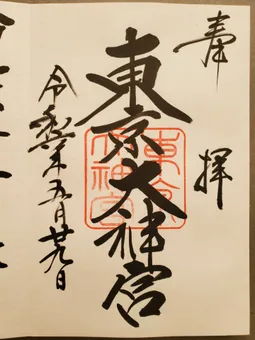 奉拝
東京大神宮
令和五月廿九日
東京
大神宮